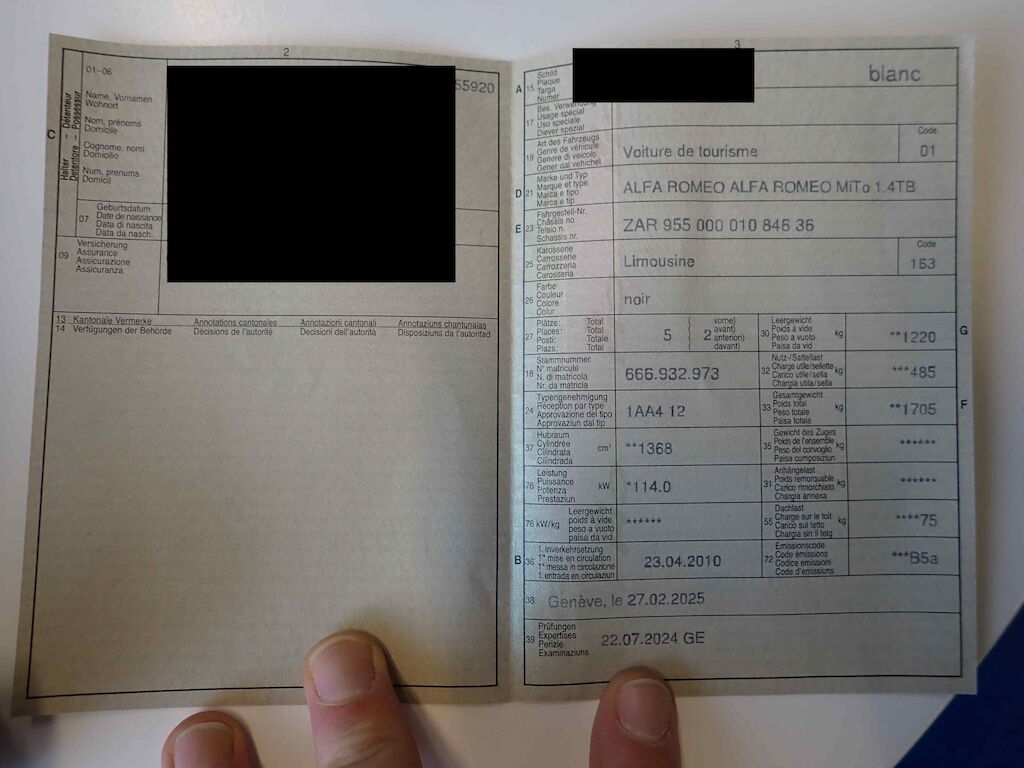 2
01-06
55920
Name, Vornamen
Wohnort
Nom, prénoms
Domicile
Cognome, nomi
Domicilio
Num, prenums
Domicil
C
Halter – Détenteur
Detentore – Possessur
07
Geburtsdatum
Date de naissance
Data di nascita
Data da nasch.
09
Versicherung
Assurance
Assicurazione
Assicuranza
13 Kantonale Vermerke Annotations cantonales Annotazioni cantonali Annotaziuns chantunalas
14 Verfügungen der Behörde Décisions de l'autorité Decisioni dell'autorità Disposiziuns da l'autoritad
3
A 15
Schild
Plaque
Targa
Numer
blanc
17
Bes. Verwendung
Usage spécial
Uso speciale
Diever spezial
19
Art des Fahrzeugs
Genre de véhicule
Genere di veicolo
Gener dal vehichel
Voiture de tourisme
Code
01
D 21
Marke und Typ
Marque et type
Marca e tipo
Marca e tip
ALFA ROMEO ALFA ROMEO MiTo 1.4TB
E 23
Fahrgestell-Nr.
Châssis no
Telaio n.
Schassis nr.
ZAR 955 000 010 846 36
25
Karosserie
Carrosserie
Carrozzeria
Carossaria
Limousine
Code
163
26
Farbe
Couleur
Colore
Colur
noir
27
Plätze: Total
Places: Total
Posti: Totale
Plazs: Total
5
vorne)
avant)
anteriori)
davant)
2
30
Leergewicht
Poids à vide
Peso a vuoto
Paisa da vid
kg
**1220
G
18
Stammnummer
N° matricule
N. di matricola
Nr. da matricla
666.932.973
32
Nutz-/Sattellast
Charge utile/sellette
Carico utile/sella
Chargia utila/sella
kg
***485
24
Typengenehmigung
Réception par type
Approvazione del tipo
Approvaziun dal tip
1AA4 12
33
Gesamtgewicht
Poids total
Peso totale
Paisa totala
kg
**1705
F
37
Hubraum
Cylindrée
Cilindrata
Cilindrada
cm³
**1368
35
Gewicht des Zuges
Poids de l'ensemble
Peso del convoglio
Paisa cumposiziun
kg
******
76
Leistung
Puissance
Potenza
Prestaziun
kW
*114.0
31
Anhängelast
Poids remorquable
Carico rimorchiato
Chargia annexa
kg
******
78 kW/kg
Leergewicht
poids à vide
peso a vuoto
paisa da vid
******
55
Dachlast
Charge sur le toit
Carico sul tetto
Chargia sin il tetg
kg
****75
B 36
1. Inverkehrsetzung
1re mise en circulation
1a messa in circolazione
1. entrada en circulaziun
23.04.2010
72
Emissionscode
Code émissions
Codice emissioni
Code d'emissiuns
***B5a
38 Genève, le 27.02.2025
39
Prüfungen
Expertises
Perizie
Examinaziuns
22.07.2024 GE